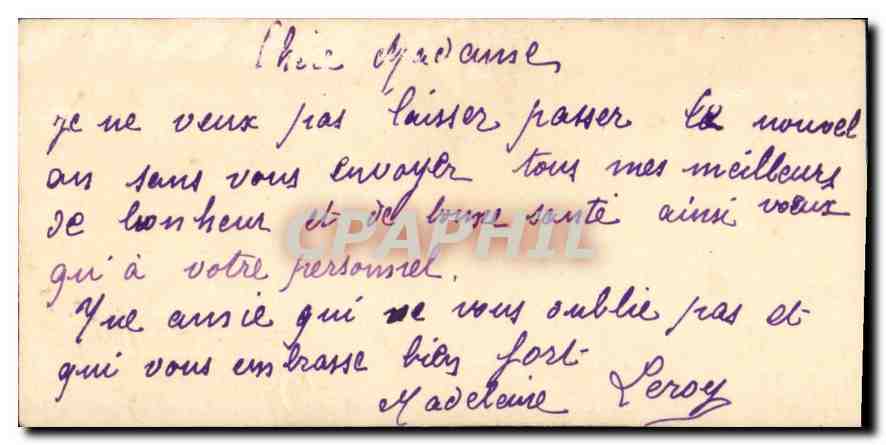 Chère Madame,
je ne veux pas laisser passer le nouvel
an sans vous envoyer tous mes meilleurs
vœux
de bonheur et de bonne santé ainsi
qu'à votre personnel.
Une amie qui ne vous oublie pas et
qui vous embrasse bien fort
Madeleine Leroy
CPAPHIL